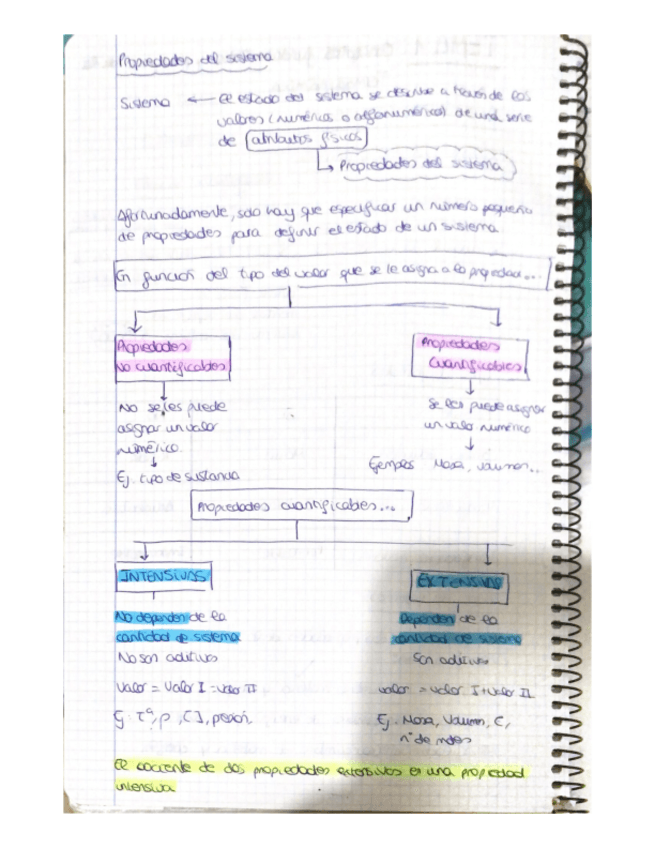 Propiedades del sistema
Sistema ← El estado del sistema se describe a través de los
valores (numéricos o alfanuméricos) de una serie
de atributos físicos
↳ Propiedades del sistema
Afortunadamente, solo hay que especificar un número pequeño
de propiedades para definir el estado de un sistema.
En función del tipo del valor que se le asigna a la propiedad...
Propiedades
No cuantificables
Propiedades
Cuantificables
No se les puede
asignar un valor
numérico.
Ej. tipo de sustancia
Se les puede asignar
un valor numérico
Ejemplos Masa, volumen...
Propiedades cuantificables...
INTENSIVAS
EXTENSIVAS
No dependen de la
cantidad de sistema
No son aditivas
Valor = Valor I = Valor II
Ej: Tª, ρ, [ ], presión.
Dependen de la
cantidad de sistema
Son aditivas
valor = valor I + Valor II
Ej. Masa, Volumen, C,
nº de moles
El cociente de dos propiedades extensivas es una propiedad
intensiva